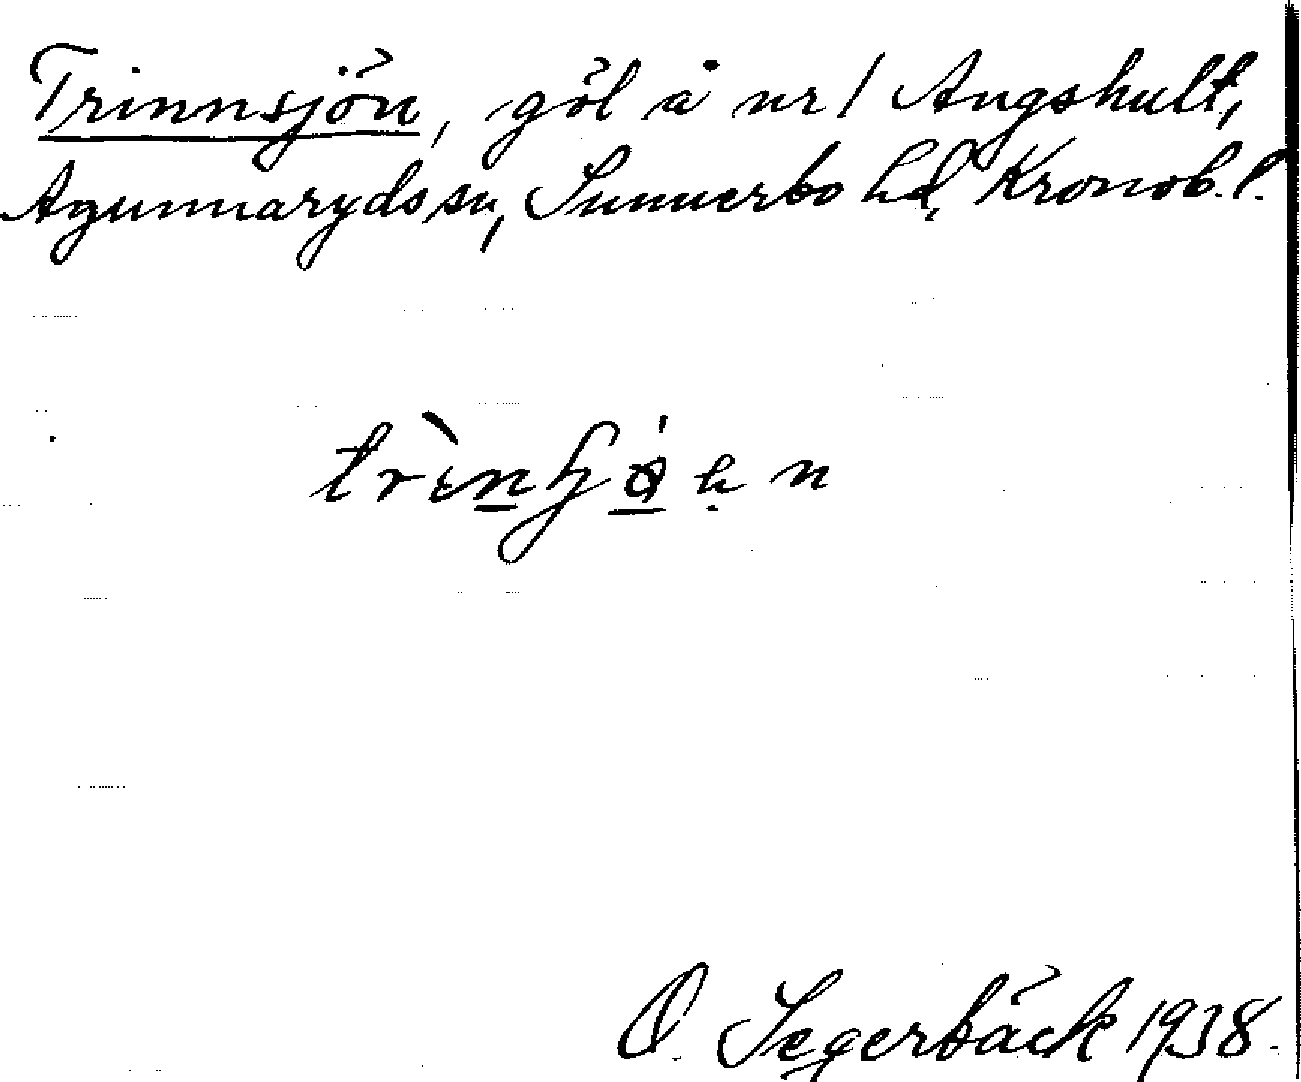 Trinnsjön, göl å nr 1 Angshult,
Agunnaryds sn, Sunnerbo hd, Kronob. l.
O. Segerbäck 1938.